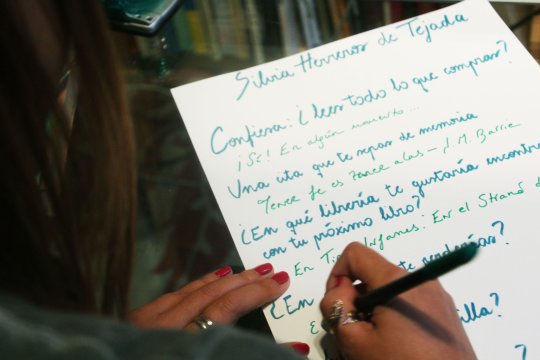 Silvia Herreros de Tejada
Confiesa: ¿lees todo lo que compras?
¡Sí! En algún momento...
Una cita que te sepas de memoria
Tener fe es tener alas - J. M. Barrie
¿En qué librería te gustaría encontra
con tu próximo libro?
En Tir Strand
¿En te
illa?
?